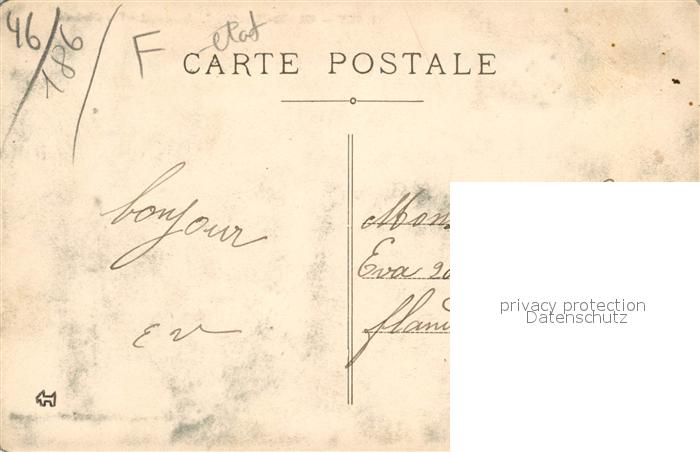 46/
186/
F
etat
CARTE POSTALE
bonjour
E V
Mon
Eva
flan
privacy protection
Datenschutz